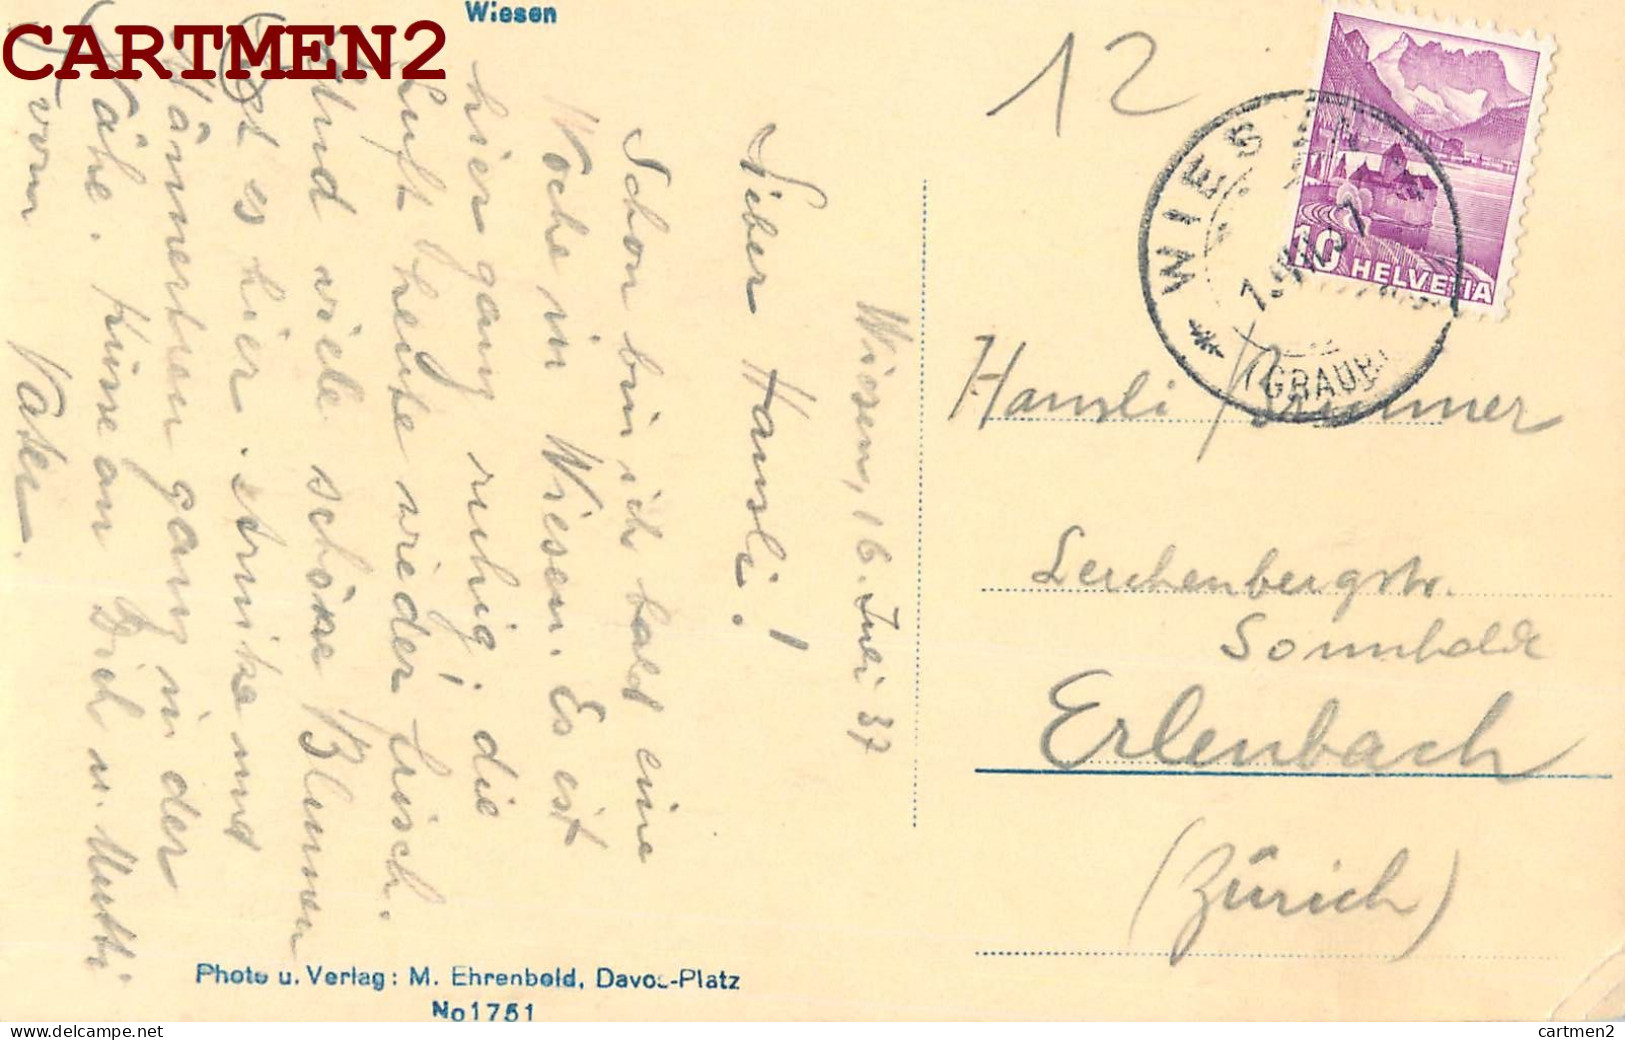 CARTMEN2
Wiesen
12
WIESEN
(GRAUB
10 HELVETIA
Wiesen, 16. Juli 37
Lieber Hansli!
Schon bin ich bald eine
Woche in Wiesen. Es ist
hier ganz ruhig; die
Luft heute wieder frisch.
und viele schöne Blumen
es hier. Arnika und
Männertreu ganz in der
Nähe. Küsse an Dich u. Mutti
vom Vater.
Hansli Brunner
Lerchenbergstr.
Sonnhalde
Erlenbach
(Zürich)
Photo u. Verlag: M. Ehrenbold, Davos-Platz
No 1751
www.delcampe.net
cartmen2